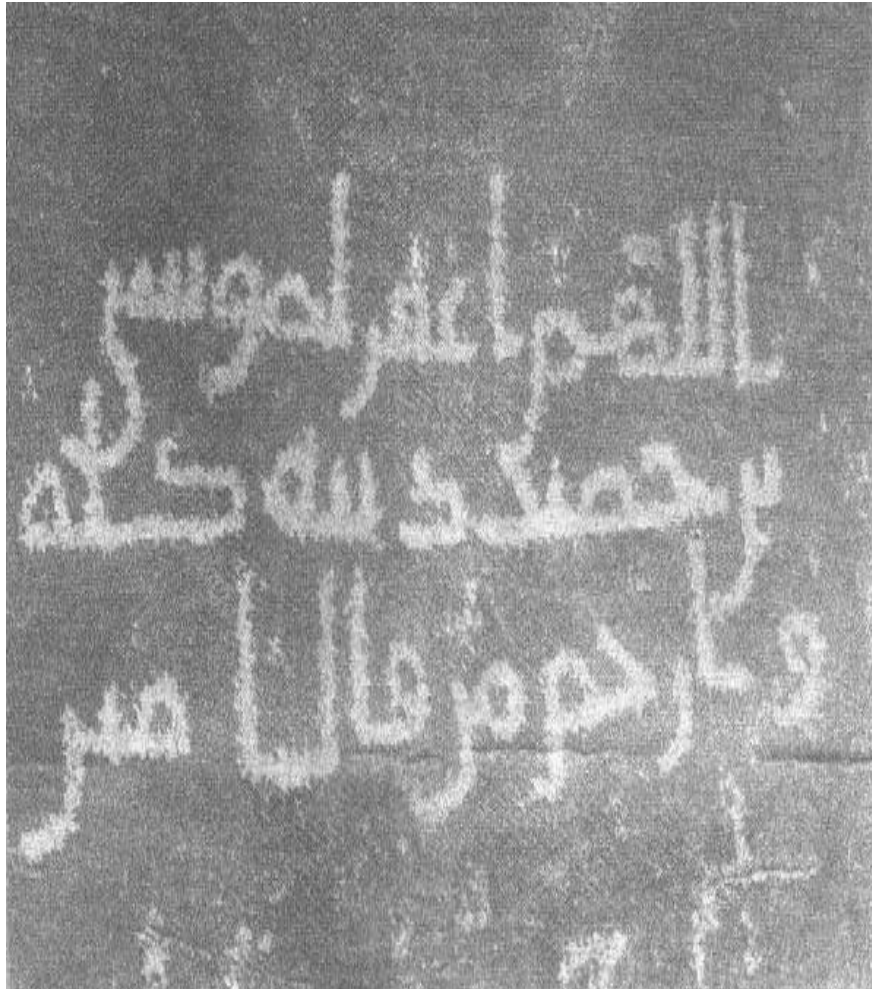 اللهم اغفر لموسى
بن حميد ذنبه كله
وارحم من قال امين